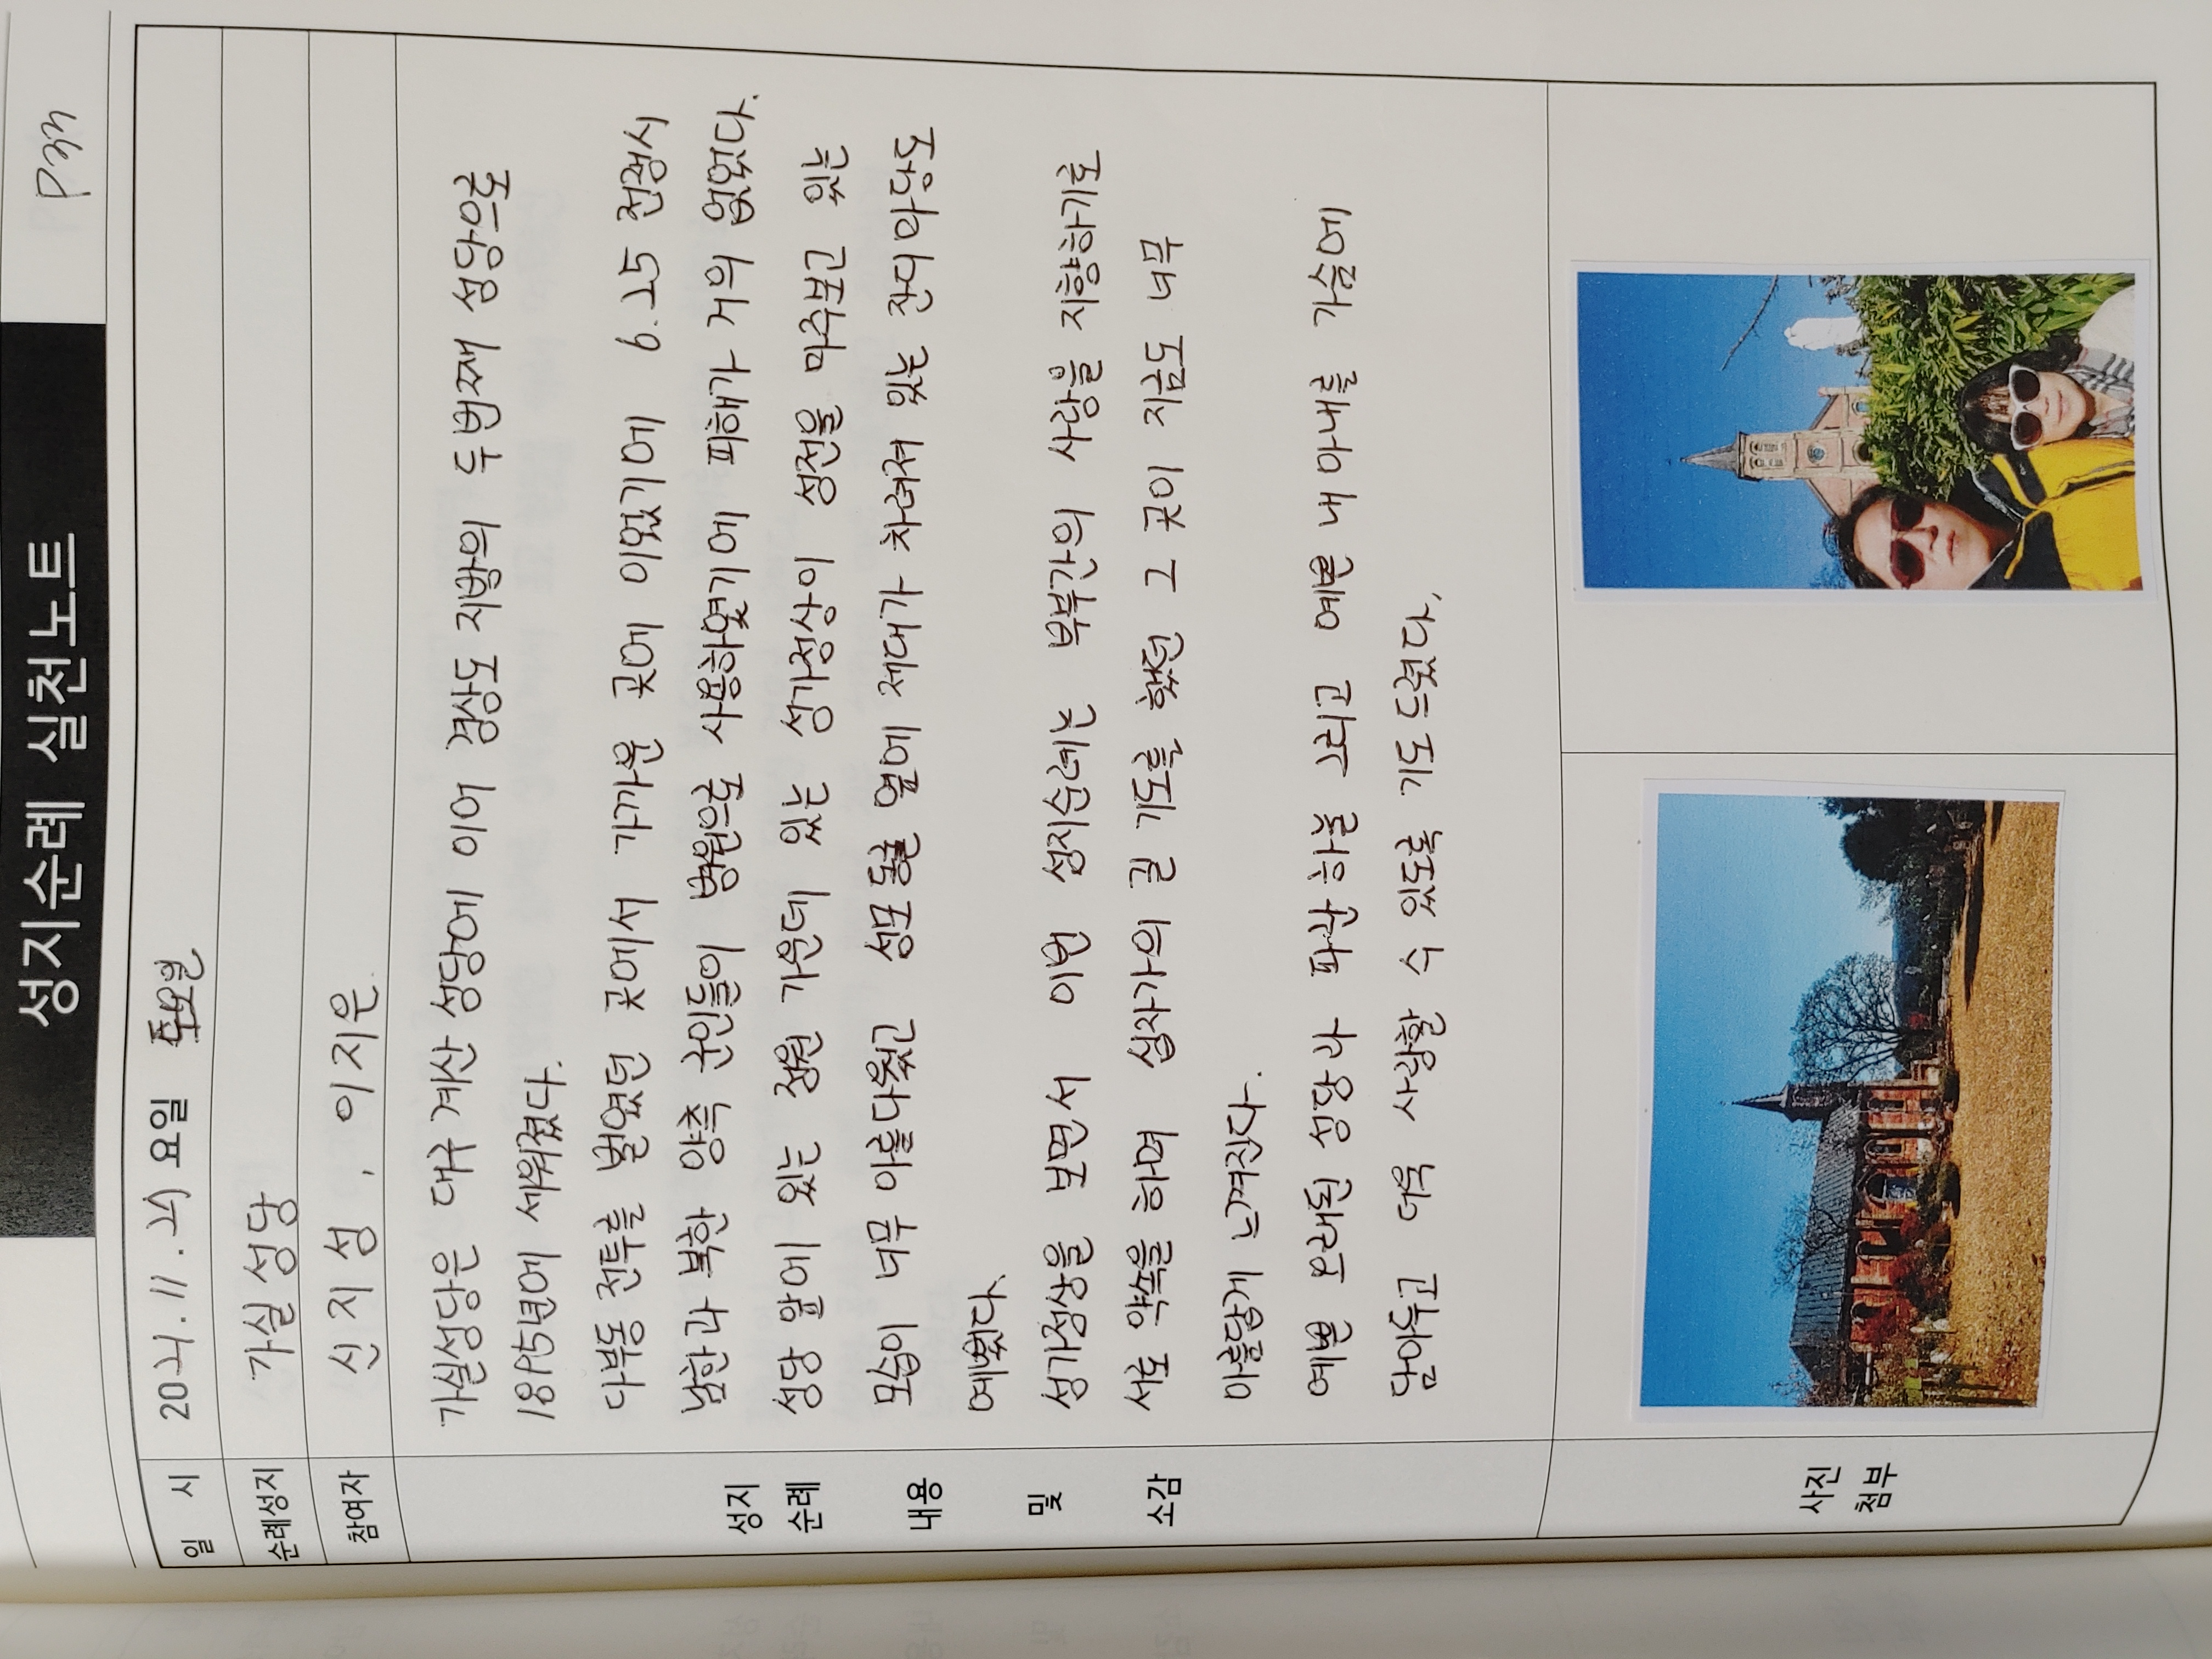 성지순례 실천노트
P33
일 시
2021.11.27) 요일 토요일
순례성지
가실성당
참여자
신지성, 이지은
성지
순례
내용
및
소감
가실성당은 대구 계산 성당에 이어 경상도 지방의 두번째 성당으로
1895년에 세워졌다.
다부동 전투를 벌였던 곳에서 가까운 곳에 이었기에 6.25 전쟁시
남한과 북한 양측 군인들이 병원으로 사용하였기에 피해가 거의 없었다.
성당 앞에 있는 정원 가운데 있는 성가정상이 성전을 마주보고 있는
모습이 너무 아름다웠고 성모동굴 옆에 제대가 차려져 있는 잔디마당도
예뻤다.
성가정상을 보면서 이번 성지순례는 부부간의 사랑을 지향하기로
서로 약속을 하며 십자가의 길 기도를 했던 그 곳이 지금도 너무
아름답게 느껴진다.
예쁜 오래된 성당과 파란하늘 그리고 예쁜 내 아내를 가슴에
담아두고 더욱 사랑할 수 있도록 기도드렸다.
사진
첨부